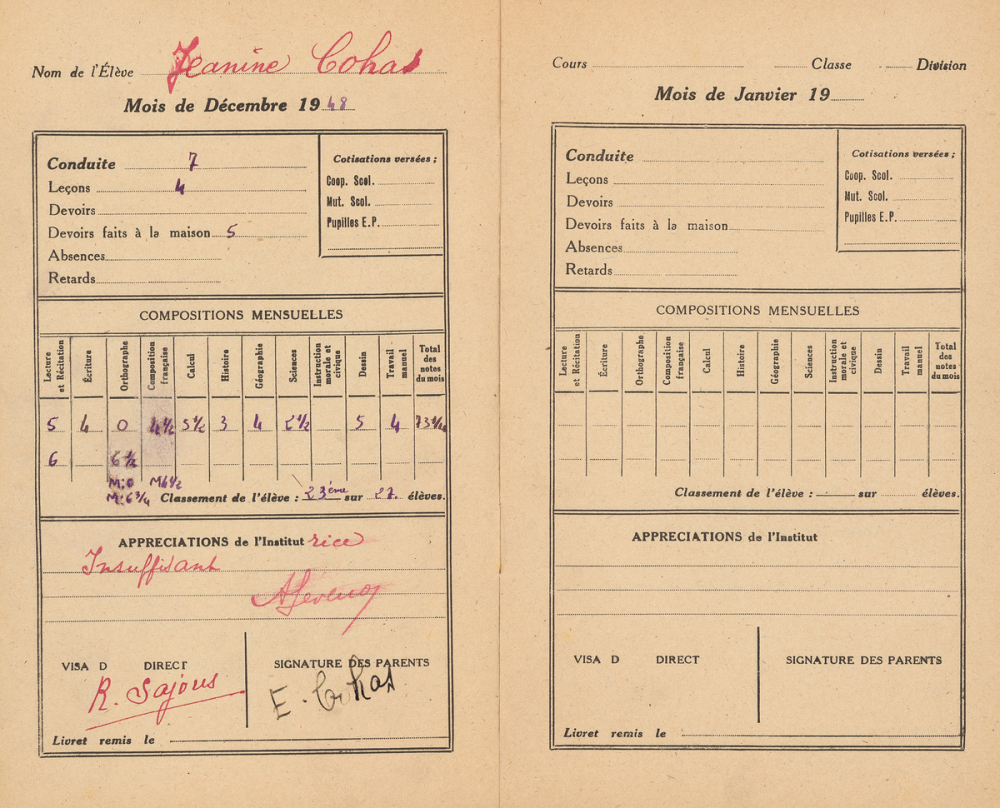 Nom de l'Élève Jeanine Cohas
Mois de Décembre 1948
Conduite 7
Leçons 4
Devoirs
Devoirs faits à la maison 5
Absences
Retards
Cotisations versées ;
Coop. Scol.
Mut. Scol.
Pupilles E.P.
COMPOSITIONS MENSUELLES
Lecture et Récitation Écriture Orthographe Composition française Calcul Histoire Géographie Sciences Instruction morale et civique Dessin Travail manuel Total des notes du mois
5 4 0 4½ 5½ 3 4 2½ 5 4
6 6½
M:0 M6½
M:6¾ Classement de l'élève : 23ème sur 27. élèves.
APPRECIATIONS de l'Institutrice
Insuffisant
VISA D DIRECT
R. Sajous
SIGNATURE DES PARENTS
E. Cohas
Livret remis le
Cours Classe Division
Mois de Janvier 19
Conduite
Leçons
Devoirs
Devoirs faits à la maison
Absences
Retards
Cotisations versées ;
Coop. Scol.
Mut. Scol.
Pupilles E.P.
COMPOSITIONS MENSUELLES
Lecture et Récitation Écriture Orthographe Composition française Calcul Histoire Géographie Sciences Instruction morale et civique Dessin Travail manuel Total des notes du mois
Classement de l'élève : sur élèves.
APPRECIATIONS de l'Institut
VISA D DIRECT
SIGNATURE DES PARENTS
Livret remis le